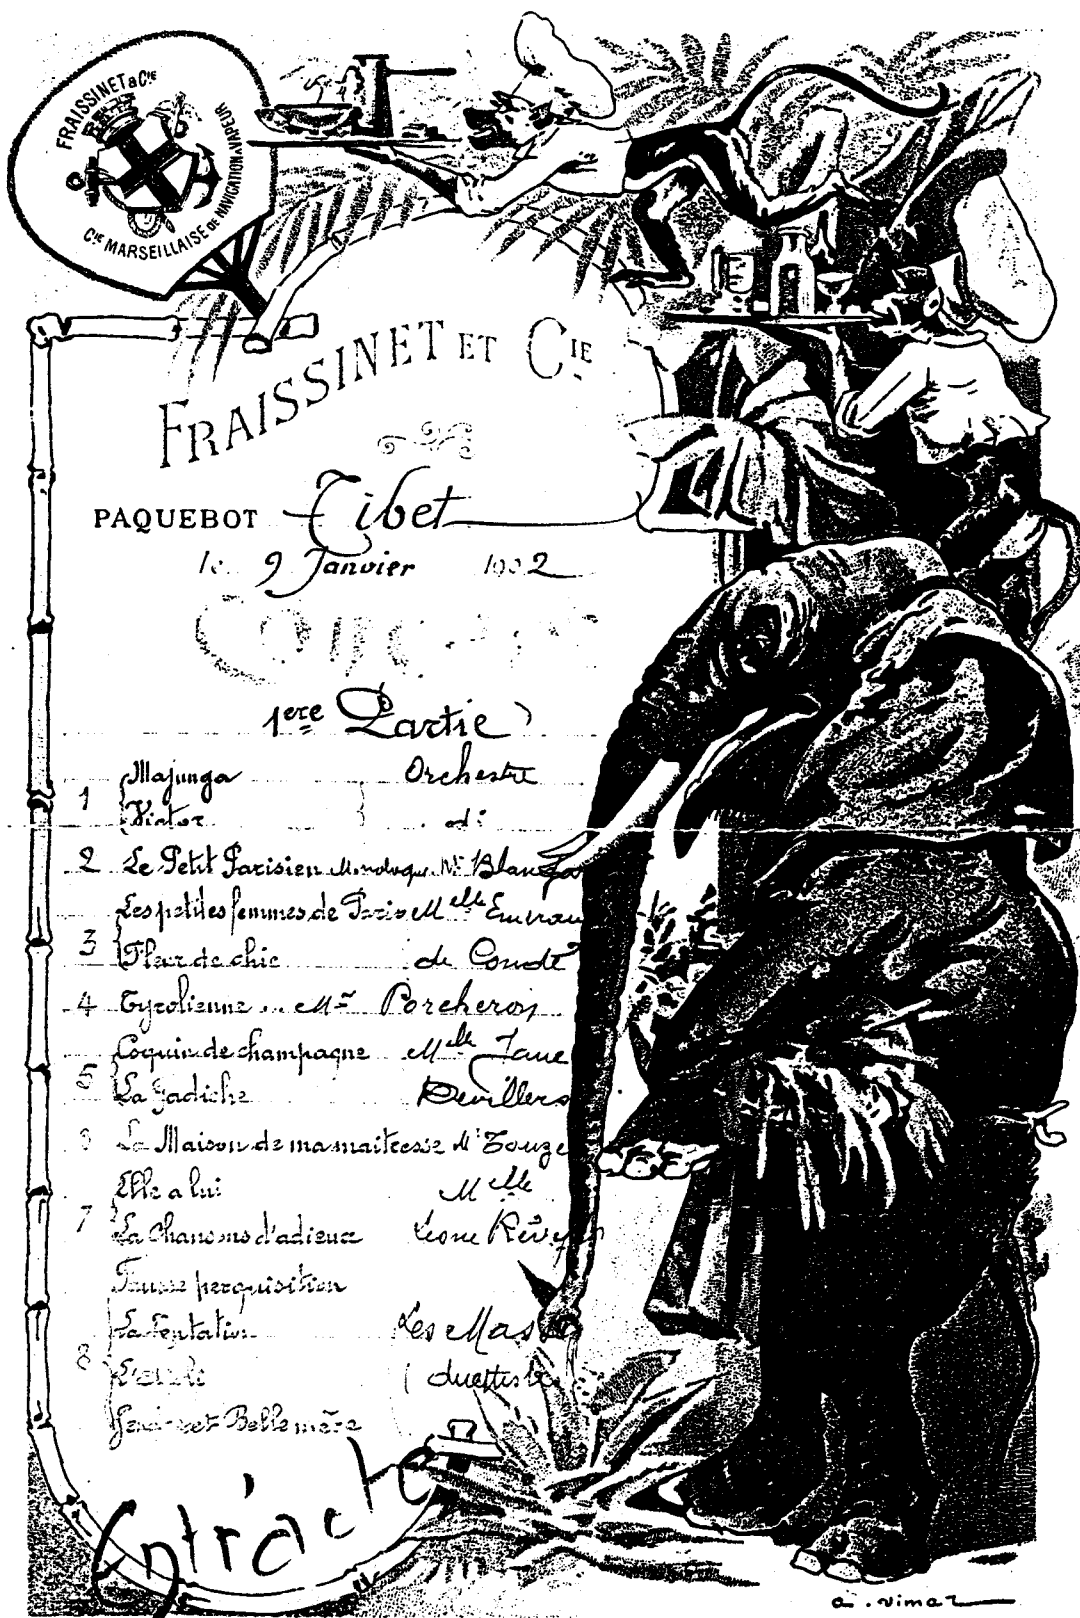 FRAISSINET & Cie
Cie MARSEILLAISE DE NAVIGATION A VAPEUR
FRAISSINET ET CIE
PAQUEBOT Tibet
le 9 Janvier 1902
Concert
1ere Partie
1 Majunga Orchestre
Viator di
2 Le Petit Parisien Monologue Mr
Les petites femmes de Paris Melle
3 Fleur de chic de Condé
4 Tyrolienne .. Mr Porcheron
Coquin de champagne Melle Jane
5 La Gadiche Devillers
6 La Maison de ma maitresse Mr Touze
Elle a lui Melle
7 La Chansons d'adieux Léone
Fausse perquisition
La Tentation Les
8 duettistes
et Belle mère
Entr'acte
a. vimar